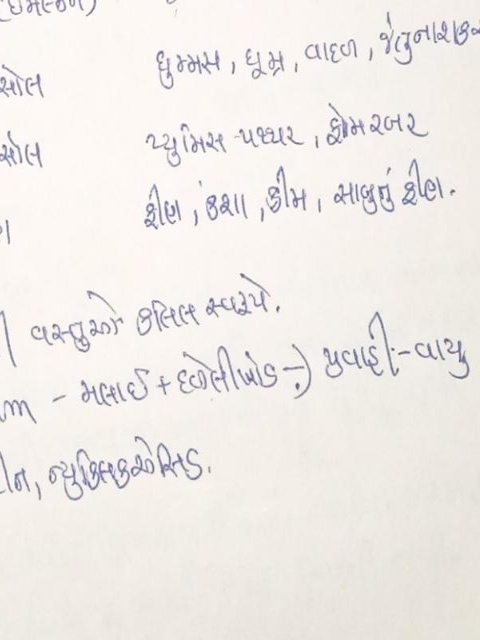 (ઇમલ્શન)
સોલ ધુમ્મસ, ધૂમ્ર, વાદળ, જંતુનાશક
સોલ પ્યુમિસ પથ્થર, ફોમ રબર
ફીણ, કશા, ક્રીમ, સાબુનું ફીણ.
વસ્તુઓ કલિલ સ્વરૂપે.
m - મલાઈ + દળેલી ખાંડ -) પ્રવાહી:- વાયુ
ટીન, ન્યુક્લિક એસિડ.